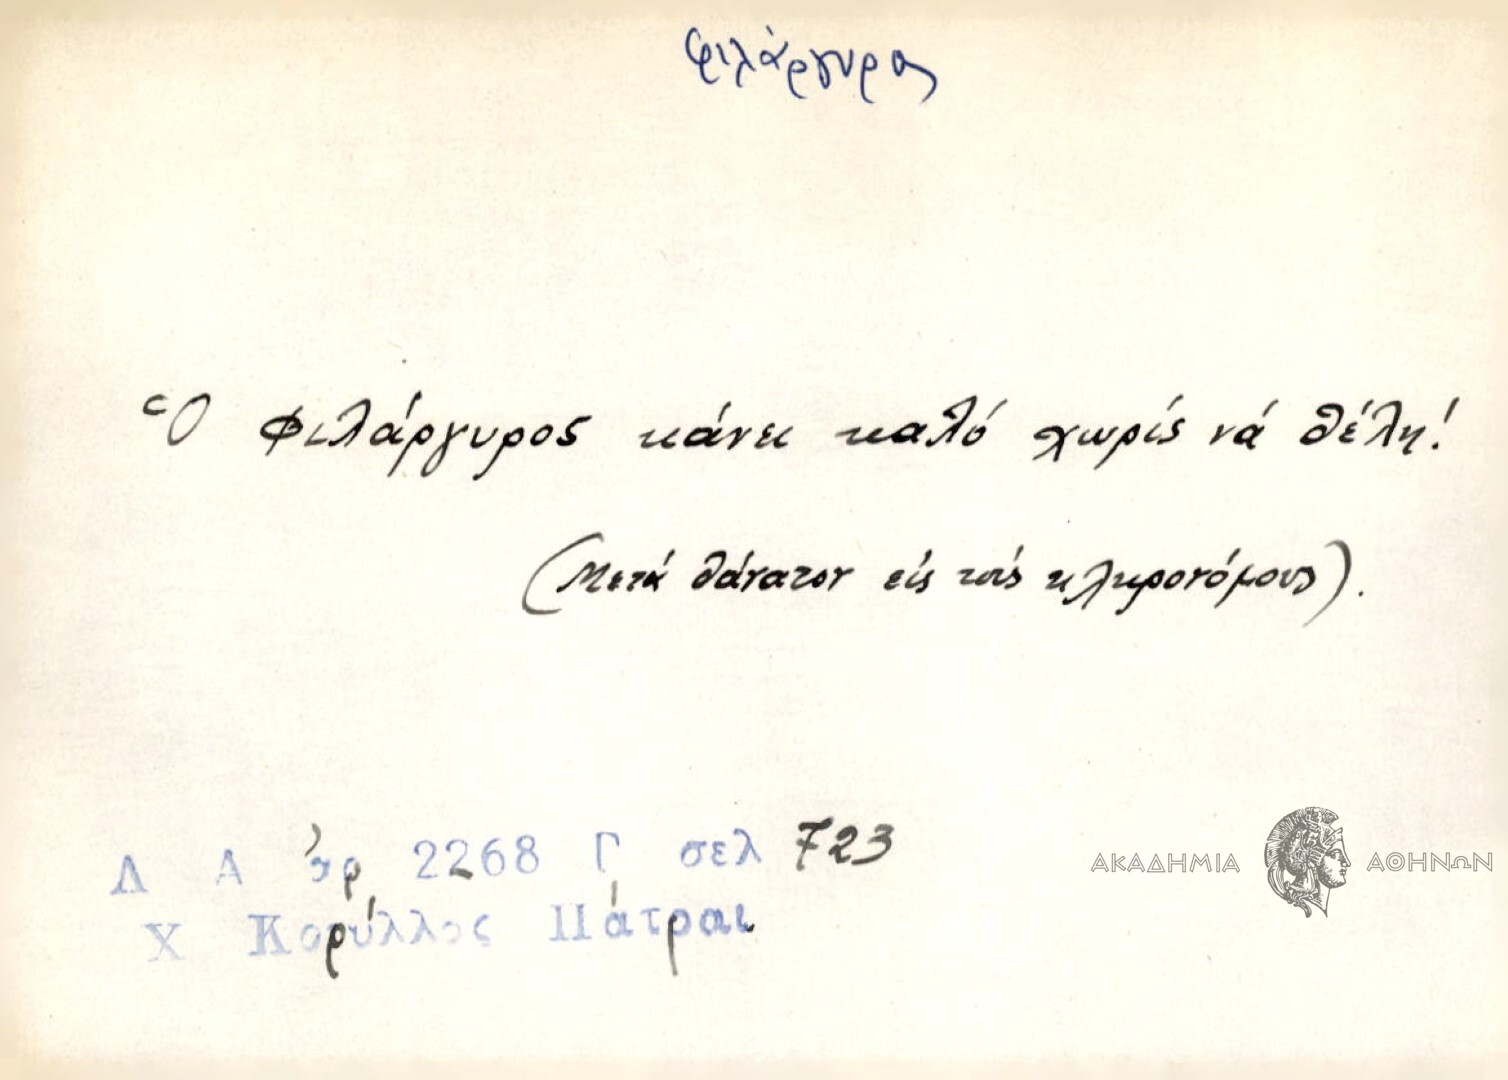 φιλάργυρος
Ὁ φιλάργυρος κάνει καλό χωρίς νά θέλη!
(Μετά θάνατον εἰς τούς κληρονόμους).
Λ Α ἀρ 2268 Γ σελ 723
Χ Κορύλλος Πάτραι
ΑΚΑΔΗΜΙΑ ΑΘΗΝΩΝ